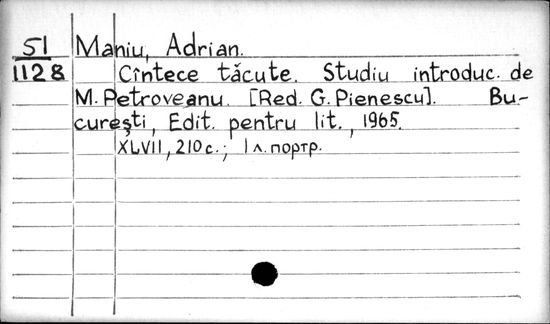 51 Maniu, Adrian.
1128 Cîntece tăcute. Studiu introduc. de
M. Petroveanu. [Red. G. Pienescu]. Bu-
curești, Edit. pentru lit., 1965.
XLVII, 210 с.; 1 л. портр.